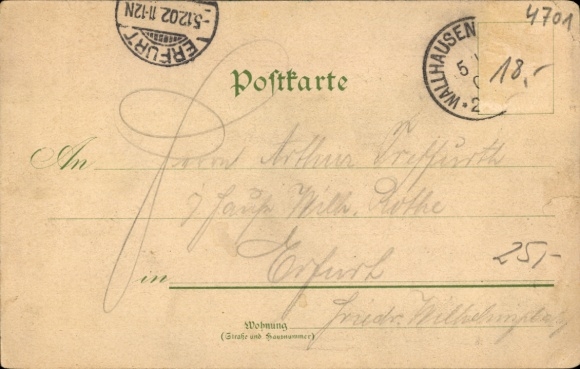 4701
ERFURT
5.12.02.11-12N
WALLHAUSEN
5
18,-
2
Postkarte
An Herrn Arthur Treffurth
Wilh. Rothe
25,-
in Erfurt
Wohnung
(Straße und Hausnummer)
Friedr. Wilhelmplatz